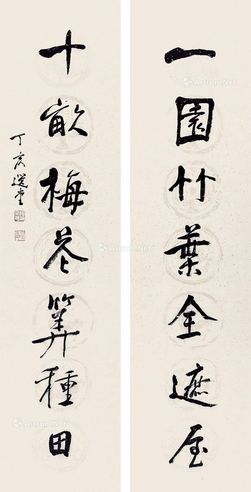 一園竹葉全遮屋
十畝梅花算種田
丁亥選堂